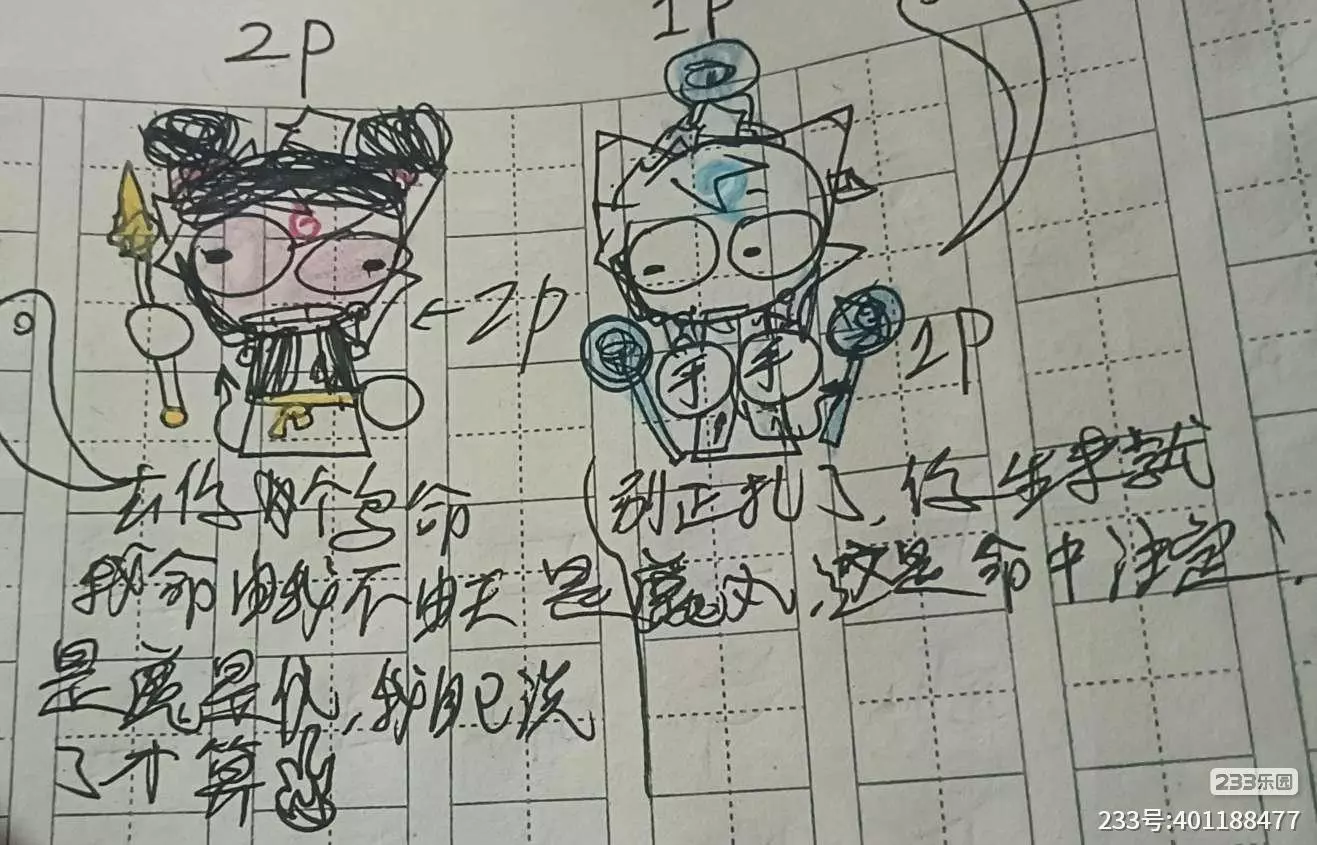 2P
1P
←2P
1P
手 手
去你个鸟命
我命由我不由天
是魔是仙,我自己说
了才算
别正扎了,你生来就
是魔丸,这是命中注定!
233乐园
233号:401188477